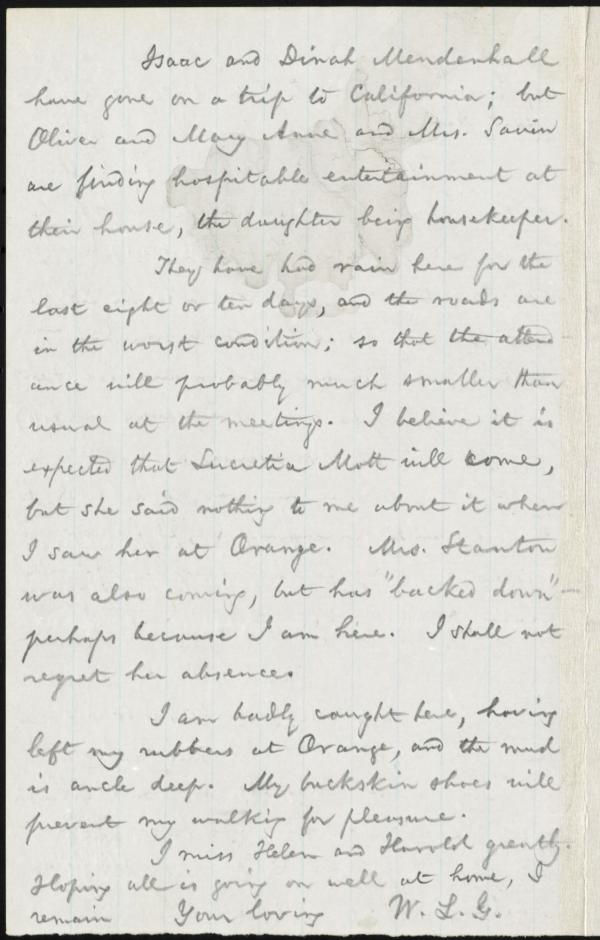 Isaac and Dinah Mendenhall
have gone on a trip to California; but
Oliver and Mary Anne and Mrs. Savin
are finding hospitable entertainment at
their house, the daughter being housekeeper.
They have had rain here for the
last eight or ten days, and the roads are
in the worst condition; so that the attend
ance will probably much smaller than
usual at the meetings. I believe it is
expected that Lucretia Mott will come,
but she said nothing to me about it when
I saw her at Orange. Mrs. Stanton
was also coming, but has "backed down" —
perhaps because I am here. I shall not
regret her absence.
I am badly caught here, having
left my rubbers at Orange, and the mud
is ancle deep. My buckskin shoes will
prevent my walking for pleasure.
I miss Helen and Harold greatly.
Hoping all is going on well at home, I
remain Your loving W. L. G.